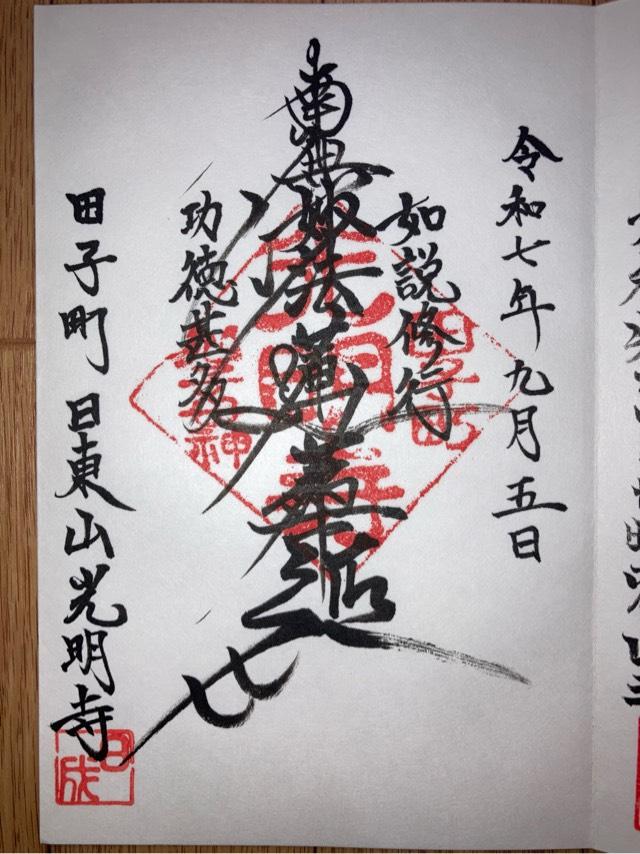 令和七年九月五日
如説修行
南無妙法蓮華経
功徳甚多
田子町 日東山光明寺
光明寺